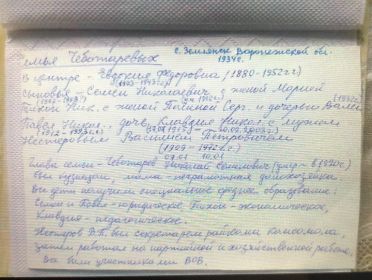 семья Чеботаревых
с. Землянск Воронежской обл.
1934г.
В центре - Евдокия Федоровна (1880-1952гг)
Сыновья - Семен Николаевич с женой Марией
Тихон Ник. с женой Полиной Серг. и дочерью Валей
Павел Никол. дочь Клавдия Никол. с мужем
Нестеровым Василием Петровичем
Глава семьи - Чеботарев Николай Семенович (умер в
был кузнецом, мама - неграмотная домохозяйка.
Все дети получили специальное среднее образование:
Семен и Павел - юридическое, Тихон - экономическое,
Клавдия - педагогическое.
Нестеров В.П. был секретарем райкома комсомола,
затем работал на партийной и хозяйственной работе.
Все были участниками ВОВ.